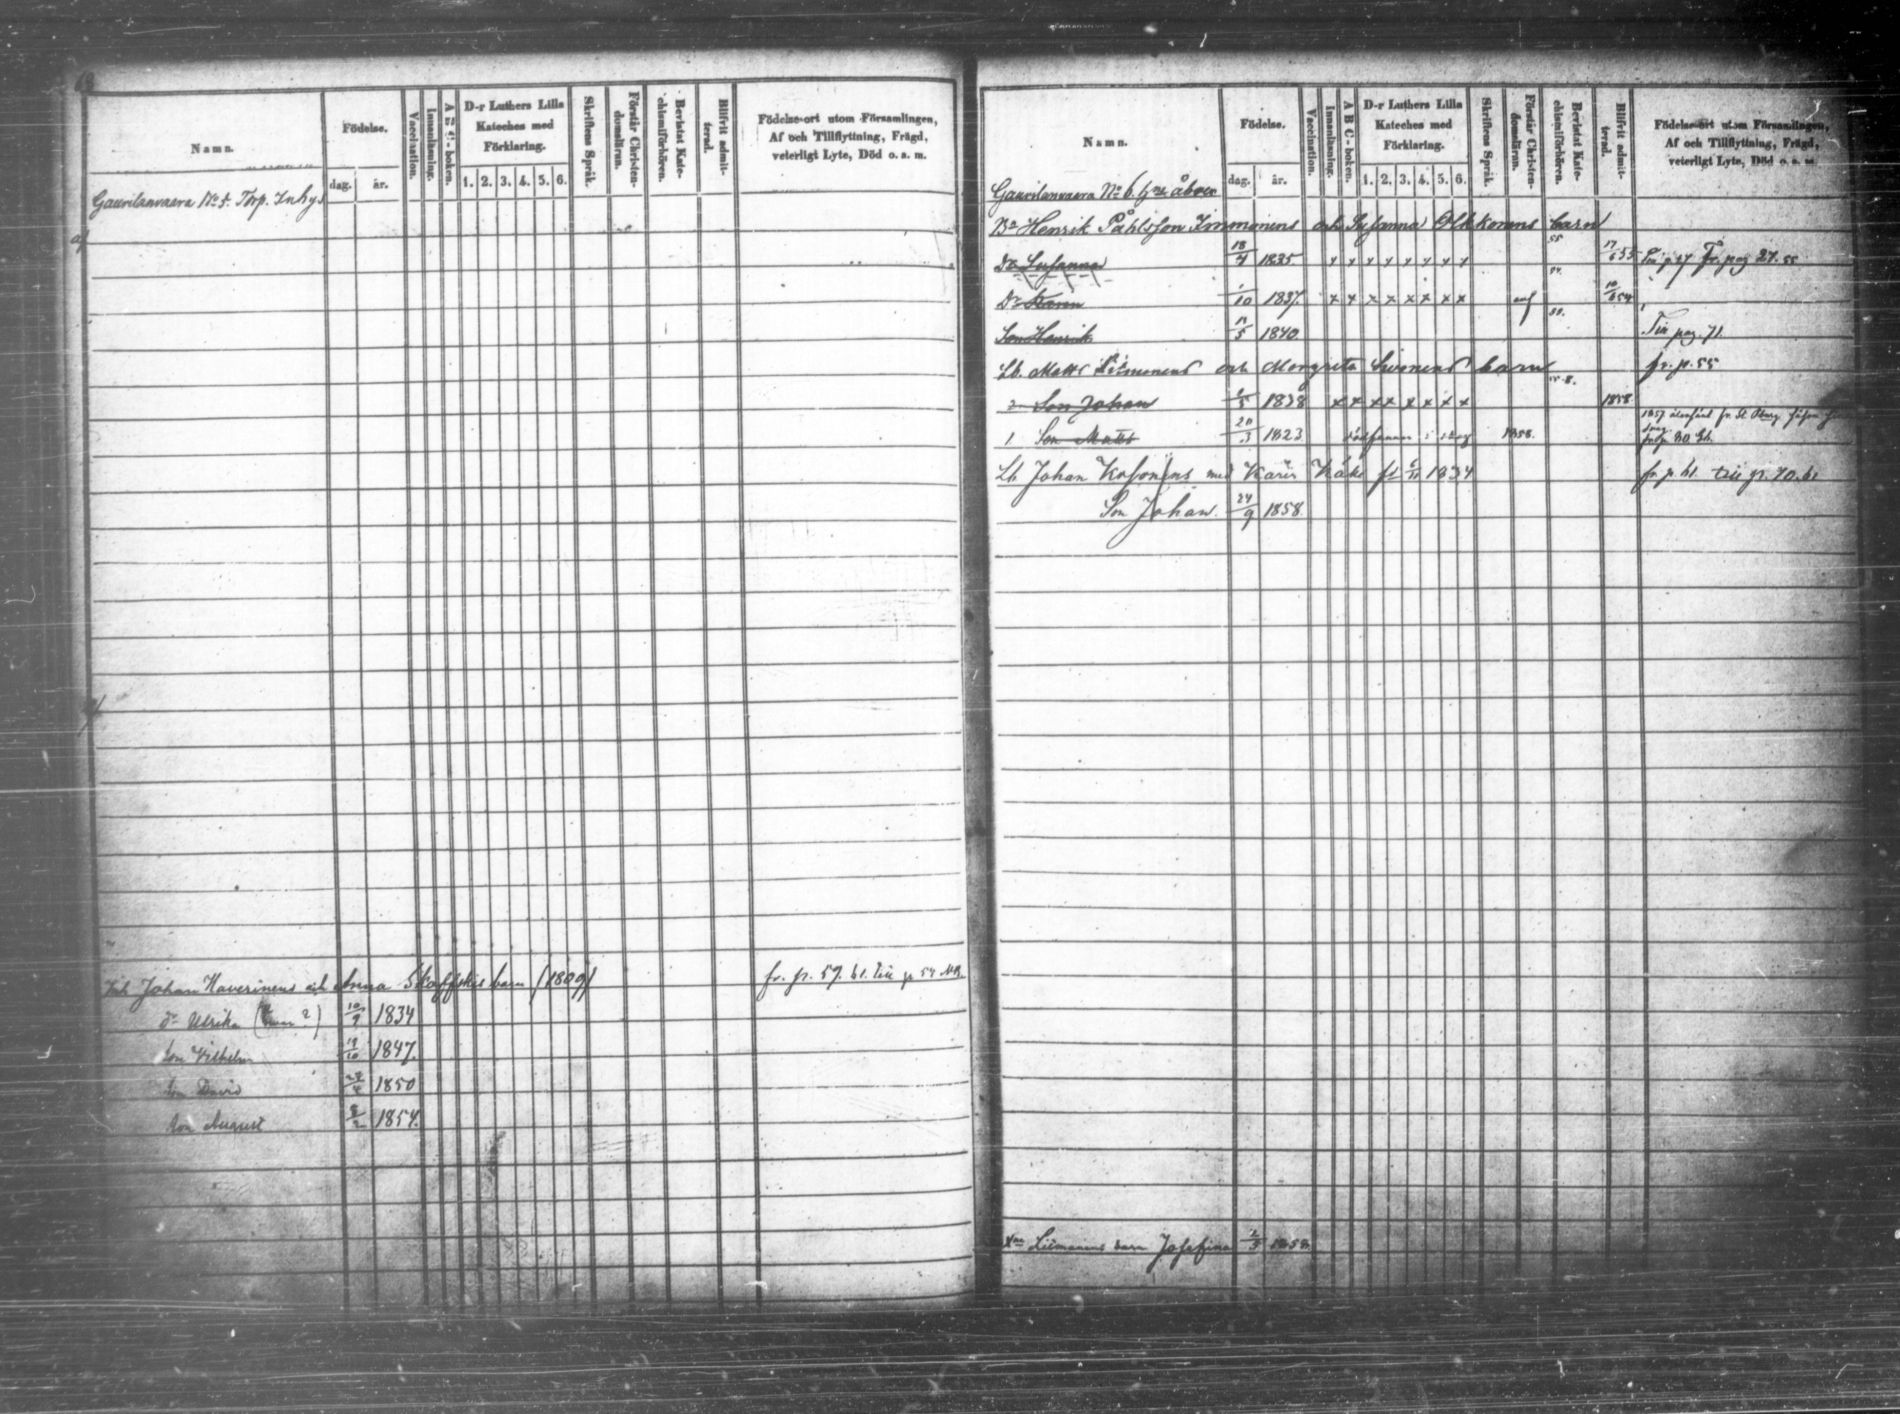 Namn.
Födelse.
dag. år.
Vaccination.
Innanläsning.
A B C-boken.
D-r Luthers Lilla
Kateches med
Förklaring.
1. 2. 3. 4. 5. 6.
Skriftens Språk.
Förstår Christen-
domsläran.
Bevistat Kate-
chismiförhören.
Blifvit admit-
terad.
Födelse-ort utom Församlingen,
Af och Tillflyttning, Frägd,
veterligt Lyte, Död o. s. m.
Gaurilanvaara No 5. Torp. Inhys
Johan Haverinens och Anna barn (1809) fr. p. 57. 61. till p 54
dr Ulrika 10/9 1834
Son Vilhelm /10 1847.
Son David 1850
Son August 1854.
Namn.
Födelse.
dag. år.
Vaccination.
Innanläsning.
A B C-boken.
D-r Luthers Lilla
Kateches med
Förklaring.
1. 2. 3. 4. 5. 6.
Skriftens Språk.
Förstår Christen-
domsläran.
Bevistat Kate-
chismiförhören.
Blifvit admit-
terad.
Födelse-ort utom Församlingen,
Af och Tillflyttning, Frägd,
veterligt Lyte, Död o. s. m.
Gaurilanvaara No 6. åboer
Bn Henrik Påhlsson Immonens och Susanna Olkkonens barn
Dr Susanna 18/4 1835 x x x x x x x x 55 17/6 55 Fr. pag 27. 55
Dr Karin /10 1837. x x x x x x x x 54. 10/6 54
Son Henrik 11/5 1840. 50. Till pag. 71.
Lb. Matts och Margreta barn fr. p. 55
2 Son Johan /5 1838 x x x x x x x x 1858
1 Son Matts 20/3 1823 1858.
Lb Johan Kosonens med Karin 1834 fr. p. 61. till p. 70. 61
Son Johan. 24/9 1858.
barn Josefina 1858.